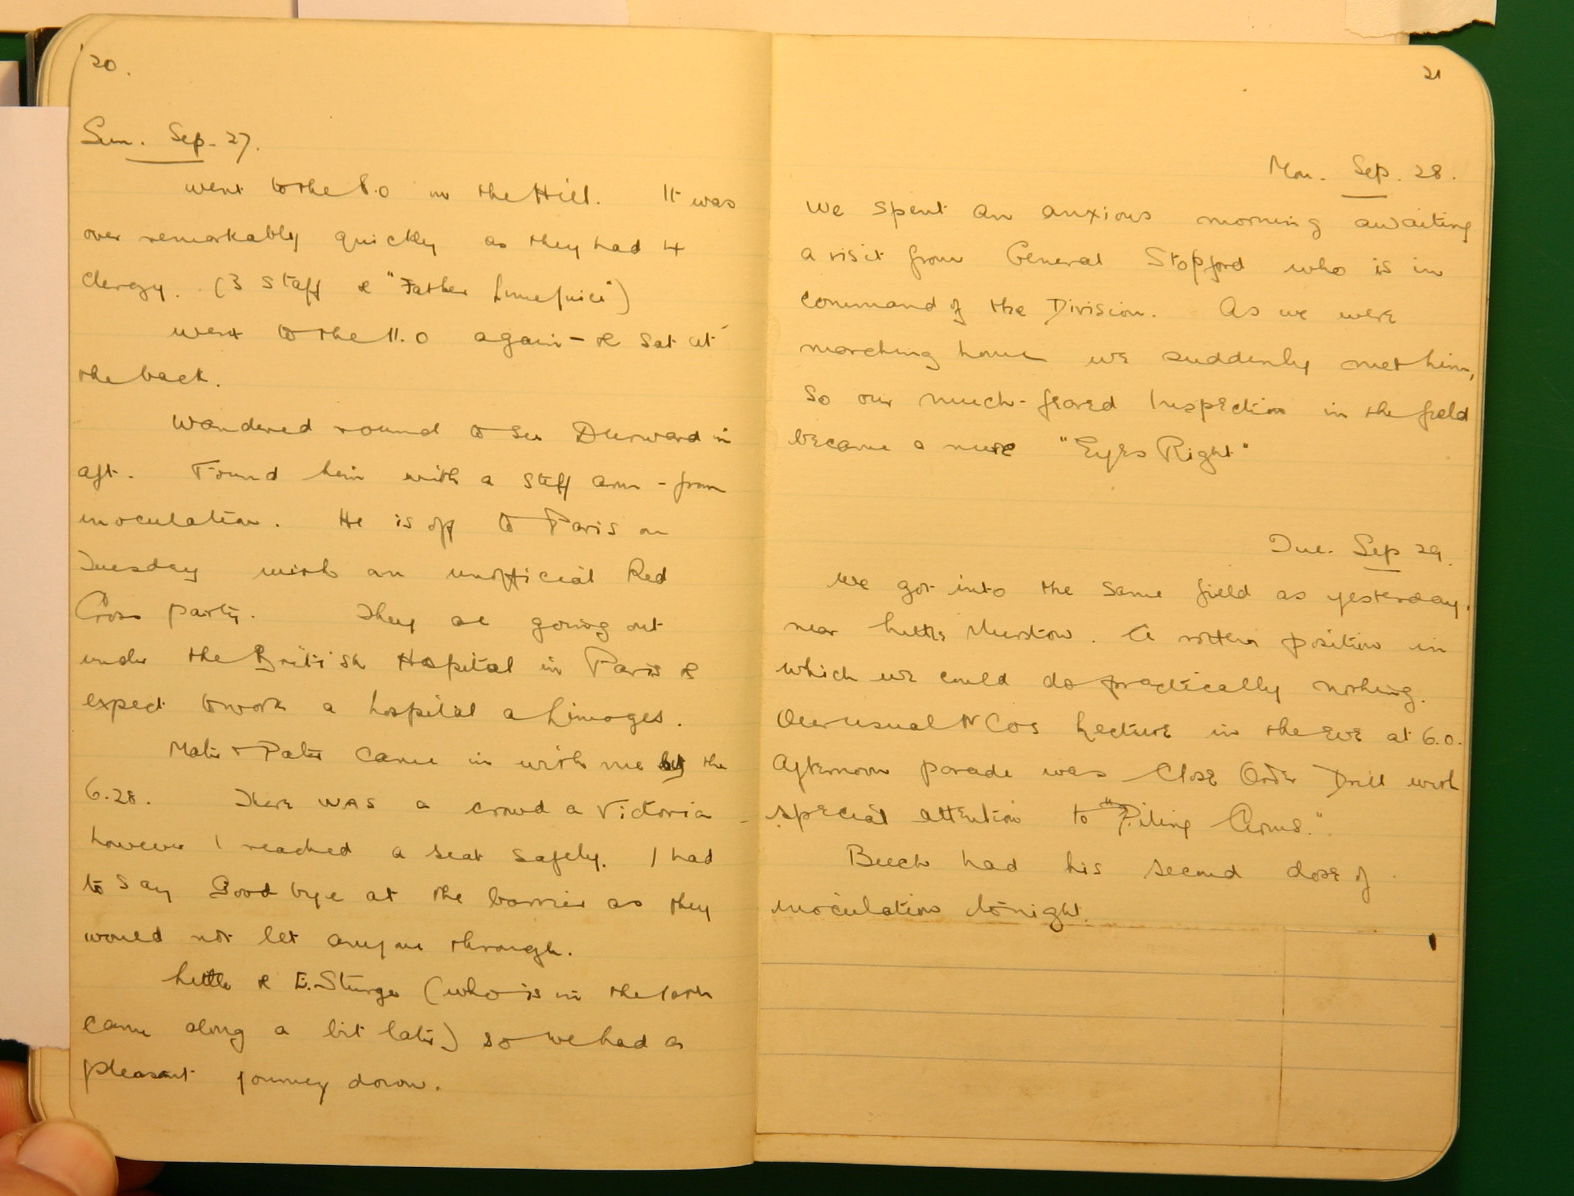 20.
Sun. Sep. 27.
went to the 8.0 on the Hill. It was
over remarkably quickly as they had 4
clergy. (3 staff & "Father Limejuice")
went to the 11.0 again - & sat at
the back.
Wandered round to see Durward in
aft. Found him with a stiff arm - from
inoculation. He is off to Paris on
Tuesday with an unofficial Red
Cross party. They are going out
under the British Hospital in Paris &
expect to work a hospital at Limoges.
Mater & Pater came in with me by the
6.28. There was a crowd at Victoria
however I reached a seat safely. I had
to say Goodbye at the barrier as they
would not let anyone through.
Little & E. Sturge (who is in the 10th
came along a bit later) so we had a
pleasant journey down.
21
Mon. Sep. 28.
We spent an anxious morning awaiting
a visit from General Stopford who is in
command of the Division. As we were
marching home we suddenly met him,
so our much-feared Inspection in the field
became a mere "Eyes Right"
Tue. Sep 29.
We got into the same field as yesterday.
near Little Murston. A rotten position in
which we could do practically nothing.
Our usual NCOs Lecture in the eve at 6.0.
Afternoon parade was Close Order Drill with
special attention to "Piling Arms."
Beech had his second dose of
inoculation tonight.